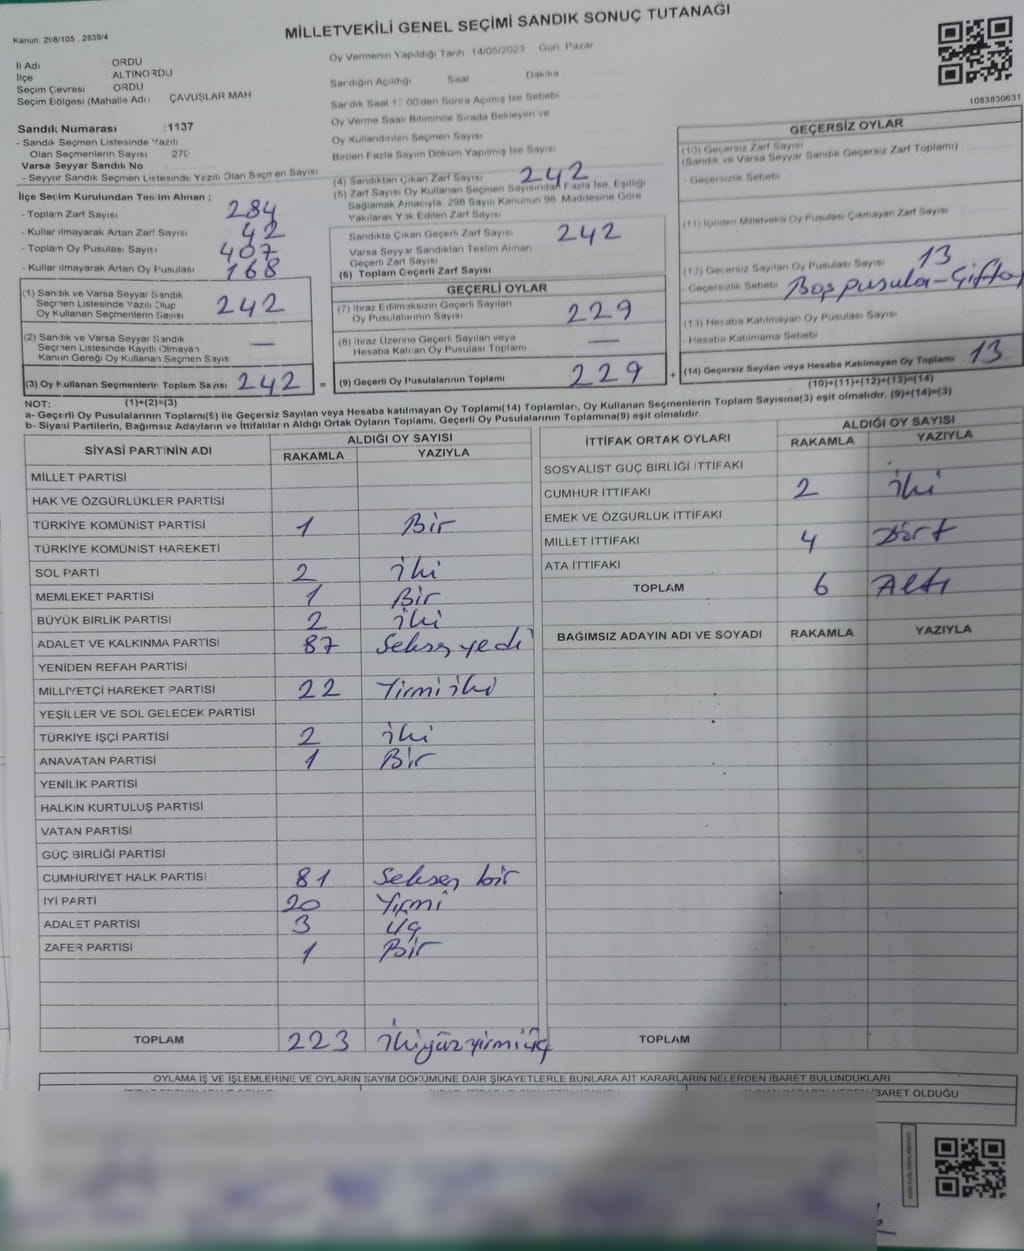 MİLLETVEKİLİ GENEL SEÇİMİ SANDIK SONUÇ TUTANAĞI
Kanun: 298/105 , 2839/4
İl Adı ORDU
İlçe ALTINORDU
Seçim Çevresi ORDU
Seçim Bölgesi (Mahalle Adı) ÇAVUŞLAR MAH
Sandık Numarası :1137
- Sandık Seçmen Listesinde Yazılı
Olan Seçmenlerin Sayısı 270
Varsa Seyyar Sandık No
- Seyyar Sandık Seçmen Listesinde Yazılı Olan Seçmen Sayısı
Oy Vermenin Yapıldığı Tarih 14/05/2023 Gün Pazar
Sandığın Açıldığı Saat Dakika
Sandık Saat 17:00'den Sonra Açılmış İse Sebebi
Oy Verme Saati Bitiminde Sırada Bekleyen ve
Oy Kullandırılan Seçmen Sayısı
Birden Fazla Sayım Döküm Yapılmış İse Sayısı
1063630631
İlçe Seçim Kurulundan Teslim Alınan ;
- Toplam Zarf Sayısı 284
- Kullanılmayarak Artan Zarf Sayısı 42
- Toplam Oy Pusulası Sayısı 407
- Kullanılmayarak Artan Oy Pusulası 168
(1) Sandık ve Varsa Seyyar Sandık
Seçmen Listesinde Yazılı Olup
Oy Kullanan Seçmenlerin Sayısı 242
(2) Sandık ve Varsa Seyyar Sandık
Seçmen Listesinde Kayıtlı Olmayan
Kanun Gereği Oy Kullanan Seçmen Sayısı —
(3) Oy Kullanan Seçmenlerin Toplam Sayısı 242 =
(1)+(2)=(3)
(4) Sandıktan Çıkan Zarf Sayısı 242
(5) Zarf Sayısı Oy Kullanan Seçmen Sayısından Fazla İse, Eşitliği
Sağlamak Amacıyla, 298 Sayılı Kanunun 98. Maddesine Göre
Yakılarak Yok Edilen Zarf Sayısı
Sandıkta Çıkan Geçerli Zarf Sayısı 242
Varsa Seyyar Sandıktan Teslim Alınan
Geçerli Zarf Sayısı
(6) Toplam Geçerli Zarf Sayısı
GEÇERLİ OYLAR
(7) İtiraz Edilmeksizin Geçerli Sayılan
Oy Pusulalarının Sayısı 229
(8) İtiraz Üzerine Geçerli Sayılan veya
Hesaba Katılan Oy Pusulası Toplamı —
(9) Geçerli Oy Pusulalarının Toplamı 229 +
GEÇERSİZ OYLAR
(10) Geçersiz Zarf Sayısı
(Sandık ve Varsa Seyyar Sandık Geçersiz Zarf Toplamı) :
- Geçersizlik Sebebi
(11) İçinden Milletvekili Oy Pusulası Çıkmayan Zarf Sayısı
(12) Geçersiz Sayılan Oy Pusulası Sayısı 13
- Geçersizlik Sebebi Boş pusula-Çift oy
(13) Hesaba Katılmayan Oy Pusulası Sayısı
- Hesaba Katılmama Sebebi
(14) Geçersiz Sayılan veya Hesaba Katılmayan Oy Toplamı 13
(10)+(11)+(12)+(13)=(14)
NOT:
a- Geçerli Oy Pusulalarının Toplamı(9) ile Geçersiz Sayılan veya Hesaba katılmayan Oy Toplamı(14) Toplamları, Oy Kullanan Seçmenlerin Toplam Sayısına(3) eşit olmalıdır. (9)+(14)=(3)
b- Siyasi Partilerin, Bağımsız Adayların ve İttifakların Aldığı Ortak Oyların Toplamı, Geçerli Oy Pusulalarının Toplamına(9) eşit olmalıdır.
SİYASİ PARTİNİN ADI ALDIĞI OY SAYISI
RAKAMLA YAZIYLA
MİLLET PARTİSİ
HAK VE ÖZGÜRLÜKLER PARTİSİ
TÜRKİYE KOMÜNİST PARTİSİ 1 Bir
TÜRKİYE KOMÜNİST HAREKETİ
SOL PARTİ 2 iki
MEMLEKET PARTİSİ 1 Bir
BÜYÜK BİRLİK PARTİSİ 2 iki
ADALET VE KALKINMA PARTİSİ 87 Seksen yedi
YENİDEN REFAH PARTİSİ
MİLLİYETÇİ HAREKET PARTİSİ 22 Yirmi iki
YEŞİLLER VE SOL GELECEK PARTİSİ
TÜRKİYE İŞÇİ PARTİSİ 2 iki
ANAVATAN PARTİSİ 1 Bir
YENİLİK PARTİSİ
HALKIN KURTULUŞ PARTİSİ
VATAN PARTİSİ
GÜÇ BİRLİĞİ PARTİSİ
CUMHURİYET HALK PARTİSİ 81 Seksen bir
İYİ PARTİ 20 Yirmi
ADALET PARTİSİ 3 üç
ZAFER PARTİSİ 1 Bir
TOPLAM 223 ikiyüz yirmi üç
İTTİFAK ORTAK OYLARI ALDIĞI OY SAYISI
RAKAMLA YAZIYLA
SOSYALİST GÜÇ BİRLİĞİ İTTİFAKI
CUMHUR İTTİFAKI 2 iki
EMEK VE ÖZGÜRLÜK İTTİFAKI
MİLLET İTTİFAKI 4 Dört
ATA İTTİFAKI
TOPLAM 6 Altı
BAĞIMSIZ ADAYIN ADI VE SOYADI RAKAMLA YAZIYLA
TOPLAM
OYLAMA İŞ VE İŞLEMLERİNE VE OYLARIN SAYIM DÖKÜMÜNE DAİR ŞİKAYETLERLE BUNLARA AİT KARARLARIN NELERDEN İBARET BULUNDUKLARI
İBARET OLDUĞU